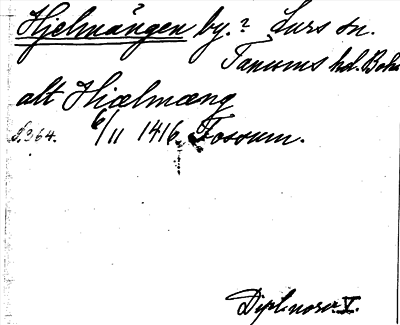 Hjelmängen by.? Lurs sn.
Tanums hd. Boh
alt Hiælmæng
S. 364. 6/11 1416. Fossum.
Dipl. norv. V.